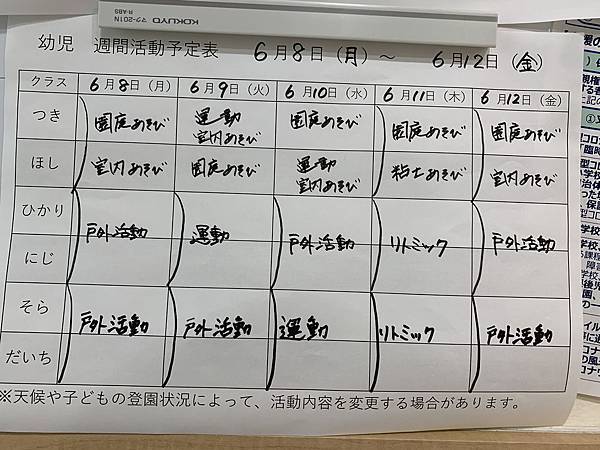 KOKUYO
マク-201N
R-ABS
幼児 週間活動予定表 6月8日(月)～ 6月12日(金)
クラス 6月8日(月) 6月9日(火) 6月10日(水) 6月11日(木) 6月12日(金)
つき 園庭あそび 運動 室内あそび 園庭あそび 園庭あそび 園庭あそび
ほし 室内あそび 園庭あそび 運動 室内あそび 粘土あそび 室内あそび
ひかり
戸外活動 運動 戸外活動 リトミック 戸外活動
にじ
そら
戸外活動 戸外活動 運動 リトミック 戸外活動
だいち
※天候や子どもの登園状況によって、活動内容を変更する場合があります。